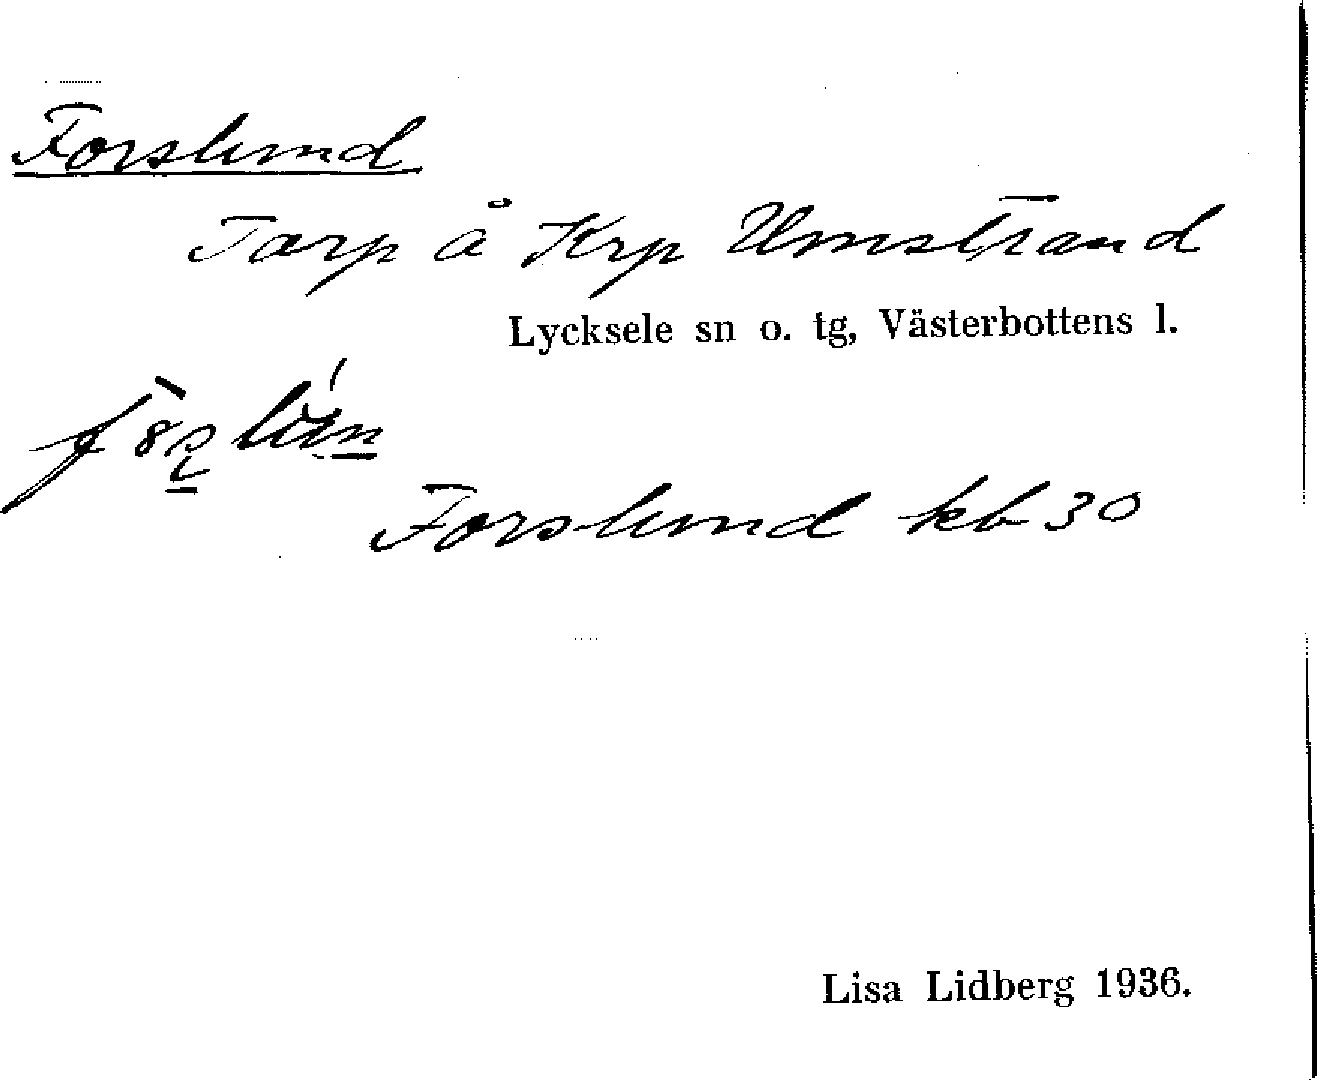 Forslund
Torp å Krp Umstrand
Lycksele sn o. tg, Västerbottens l.
Forslund kb 30
Lisa Lidberg 1936.